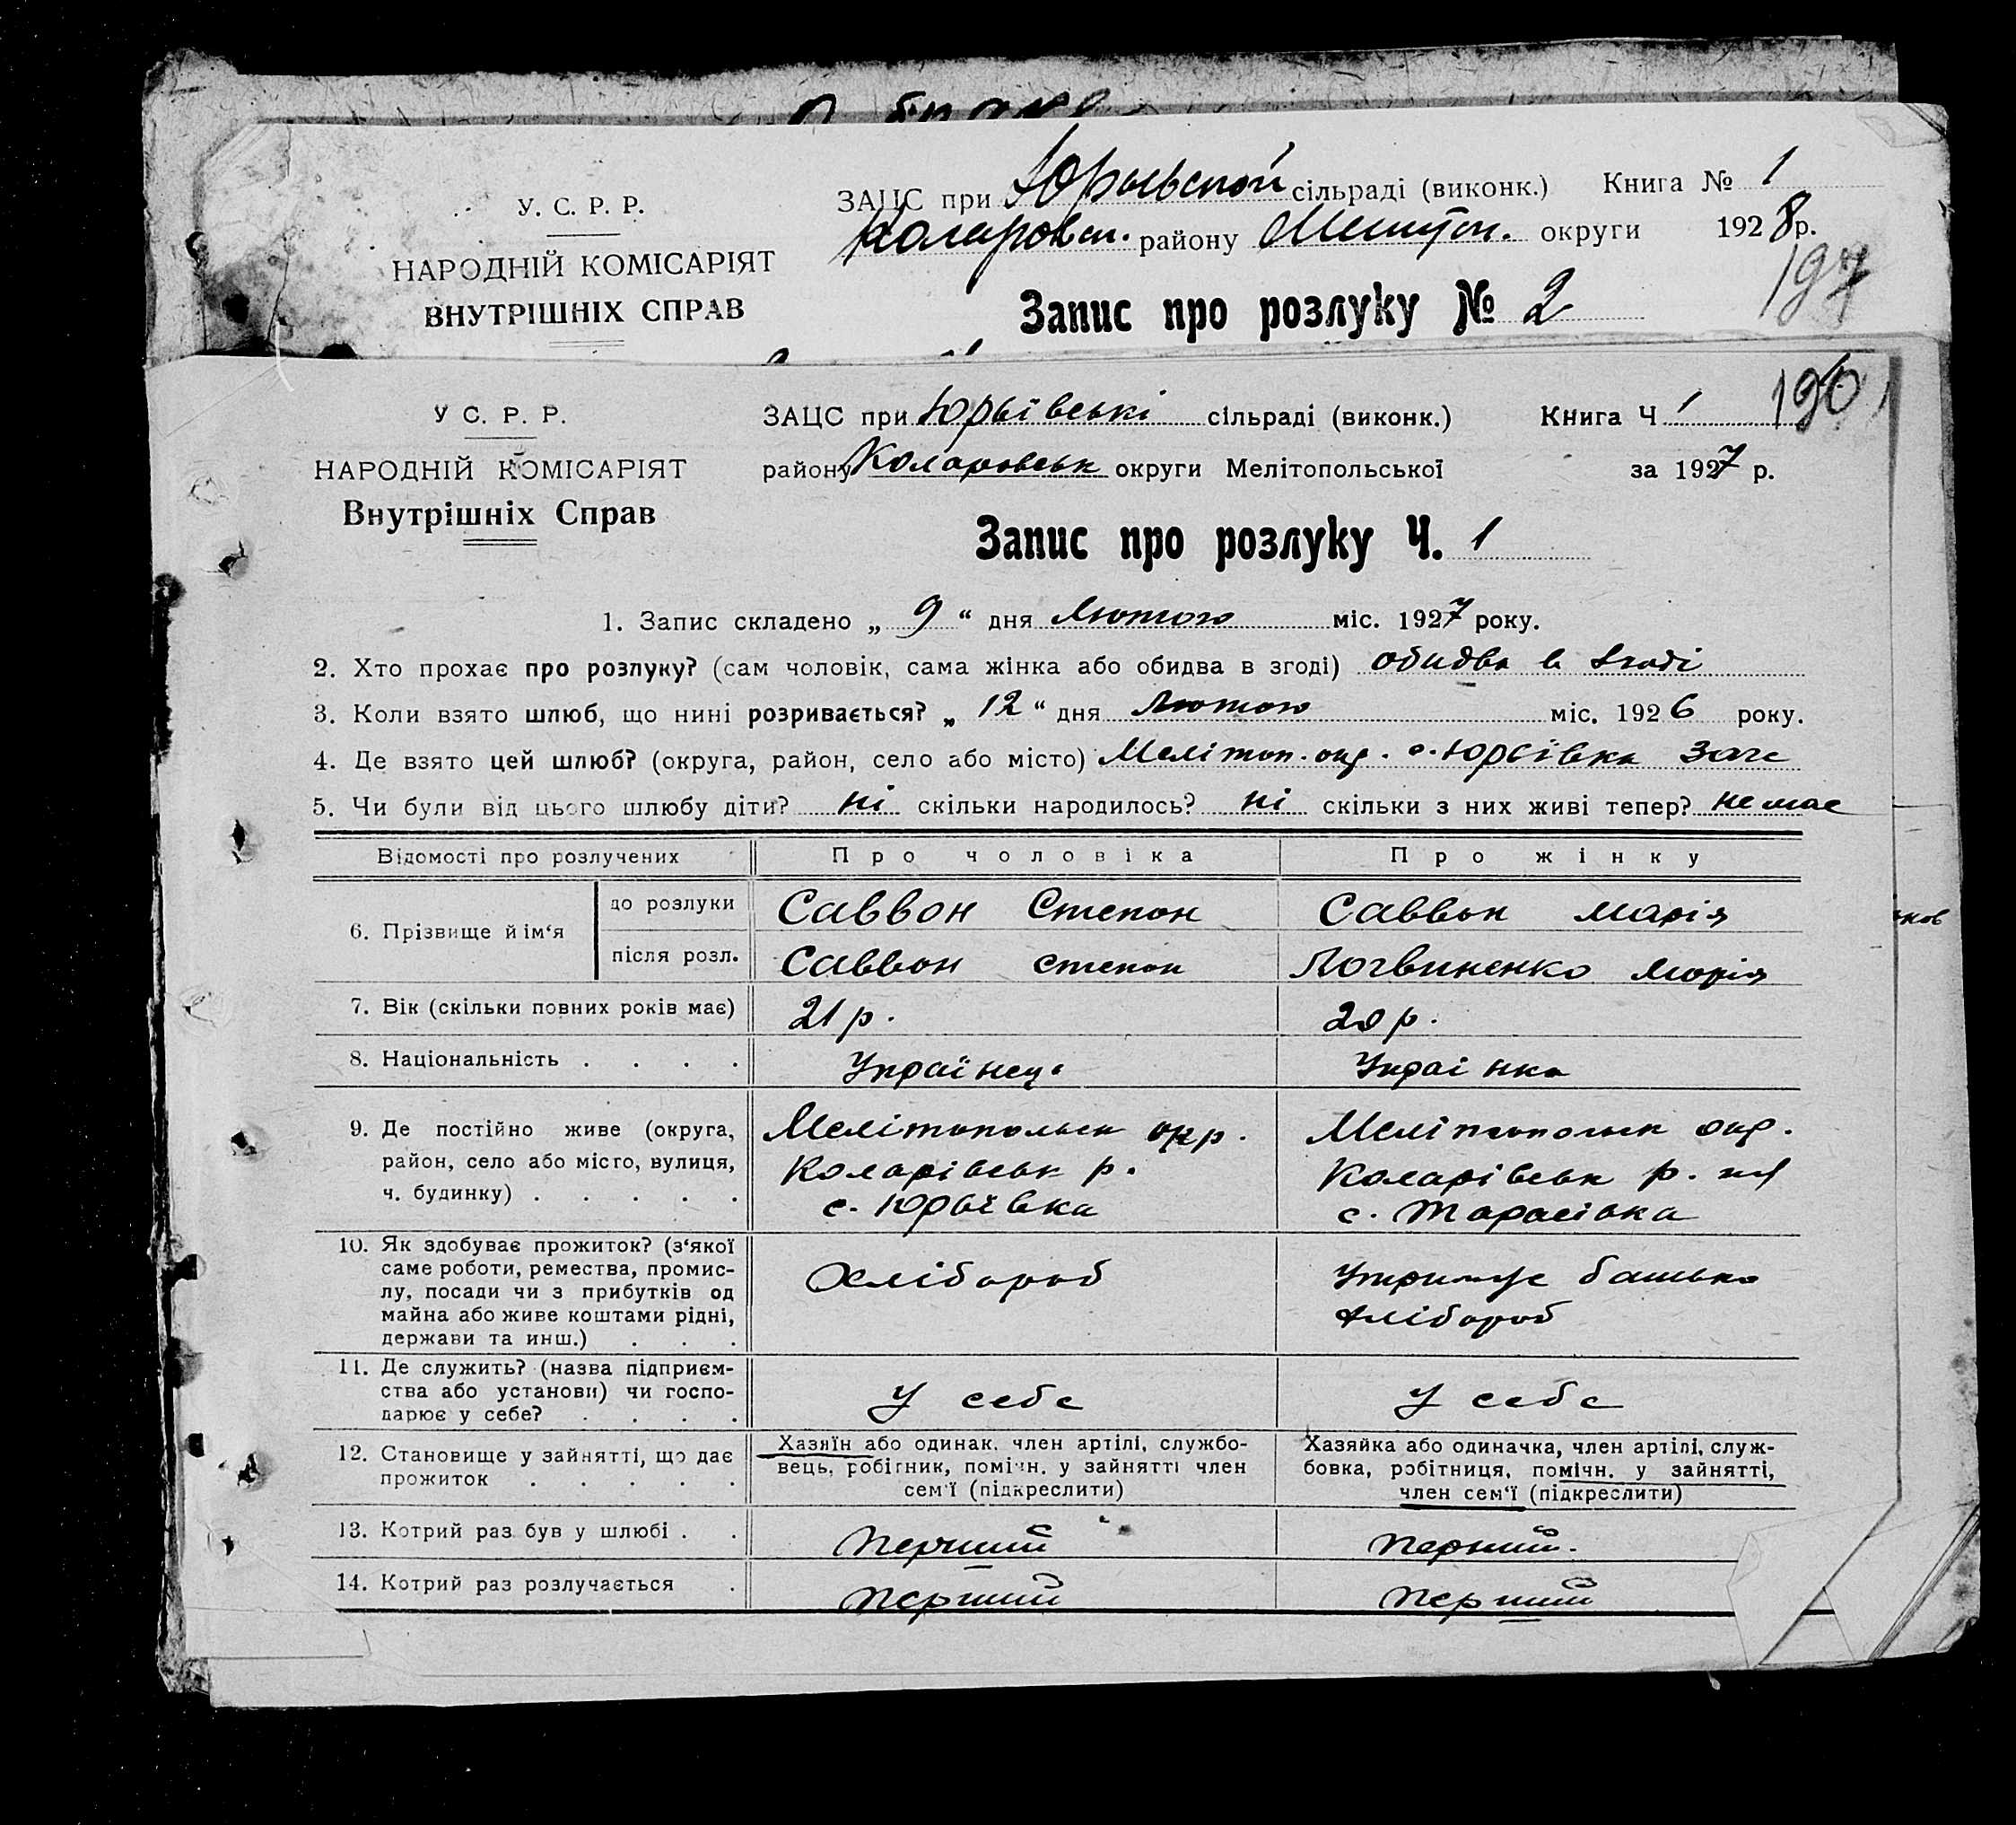 У. С. Р. Р.
НАРОДНІЙ КОМІСАРІЯТ
ВНУТРІШНІХ СПРАВ
ЗАЦС при Юрьевской сільраді (виконк.) Книга № 1
Коларовск. району округи 1928 р.
197
Запис про розлуку № 2
У С. Р. Р.
НАРОДНІЙ КОМІСАРІЯТ
Внутрішніх Справ
ЗАЦС при Юрьївські сільраді (виконк.) Книга Ч 1
196
району Коларовськ округи Мелітопольської за 1927 р.
Запис про розлуку Ч. 1
1. Запис складено „ 9 “ дня Лютого міс. 1927 року.
2. Хто прохає про розлуку? (сам чоловік, сама жінка або обидва в згоді) обидва в згоді
3. Коли взято шлюб, що нині розривається? „ 12 “ дня Лютого міс. 1926 року.
4. Де взято цей шлюб? (округа, район, село або місто) Мелітоп. окр. с. Юрьївка Загс
5. Чи були від цього шлюбу діти? ні скільки народилось? ні скільки з них живі тепер? немає
Відомості про розлучених Про чоловіка Про жінку
6. Прізвище й ім‘я
до розлуки Саввон Степан Саввон Марія
після розл. Саввон Степан Логвиненко Марія
7. Вік (скільки повних років має) 21 р. 20 р.
8. Національність . . . . Українец. Украінка
9. Де постійно живе (округа, район, село або місто, вулиця, ч. будинку) . . . . .
Мелітопольск окр.
Коларівськ р.
с. Юрьївка
Мелітопольск окр.
Коларівськ р.
с. Тарасівка
10. Як здобуває прожиток? (з‘якої
саме роботи, ремества, промис-
лу, посади чи з прибутків од
майна або живе коштами рідні,
держави та инш.) . . .
Хлібороб
Утримує батько
хлібороб
11. Де служить? (назва підприєм-
ства або установи) чи госпо-
дарює у себе? . . . .
У себе
У себе
12. Становище у зайнятті, що дає
прожиток . . . . .
Хазяїн або одинак. член артілі, службо-
вець, робітник, помічн. у зайнятті член
сем‘ї (підкреслити)
Хазяйка або одиначка, член артілі, служ-
бовка, робітниця, помічн. у зайнятті,
член сем‘ї (підкреслити)
13. Котрий раз був у шлюбі . . Перший Перший.
14. Котрий раз розлучається . Перший Перший